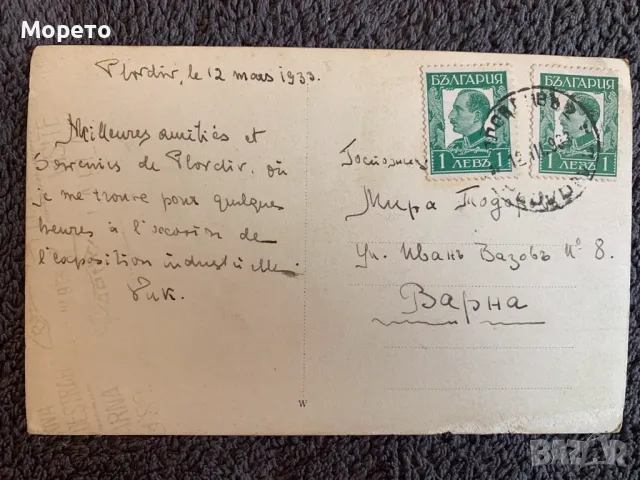 Морето
Plovdiv, le 12 mars 1933.
Meilleures amitiés et
Souvenirs de Plovdiv, où
je me trouve pour quelques
heures à l'occasion de
l'exposition industrielle.
БЪЛГАРИЯ
1 ЛЕВЪ 1
БЪЛГАРИЯ
1 ЛЕВЪ 1
Госпожица
Мира Тодор
ул. Иванъ Вазовъ № 8.
Варна
W
BAZAR